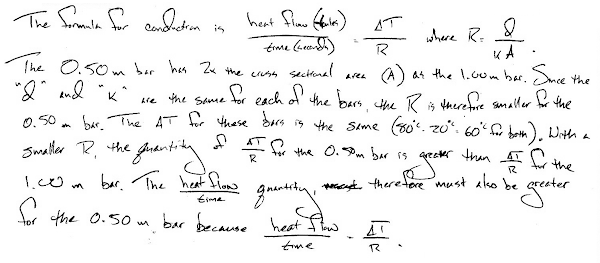 The formula for conduction is heat flow (joules) / time (seconds) = ΔT / R where R = l / κA .
The 0.50 m bar has 2x the cross sectional area (A) as the 1.00 m bar. Since the
"l" and "κ" are the same for each of the bars, the R is therefore smaller for the
0.50 m bar. The ΔT for these bars is the same (80°C - 20°C = 60°C for both). With a
smaller R, the quantity of ΔT/R for the 0.50m bar is greater than ΔT/R for the
1.00 m bar. The heat flow / time quantity, therefore must also be greater
for the 0.50 m bar because heat flow / time = ΔT / R .